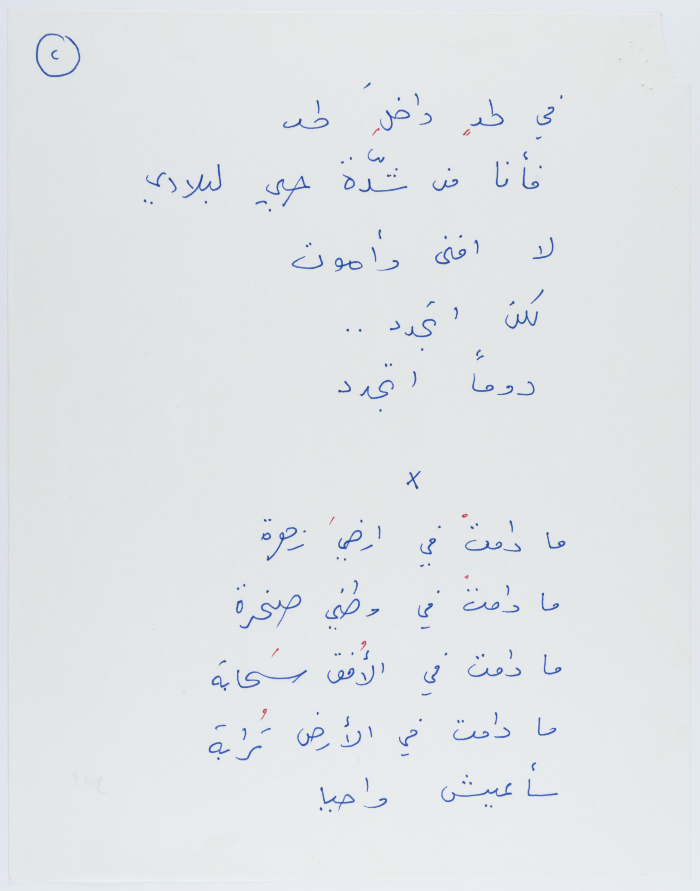 ٢
في لحدٍ داخلَ لحد
فأنا من شدّة حبي لبلادي
لا افنى وأموت
لكن اتجدد ..
دوماً اتجدد
x
ما دامتْ في ارضيَ زهرة
ما دامتْ في وطني صخرة
ما دامت في الأُفق سَحابة
ما دامت في الأرض تُرابة
سأعيش واحبا